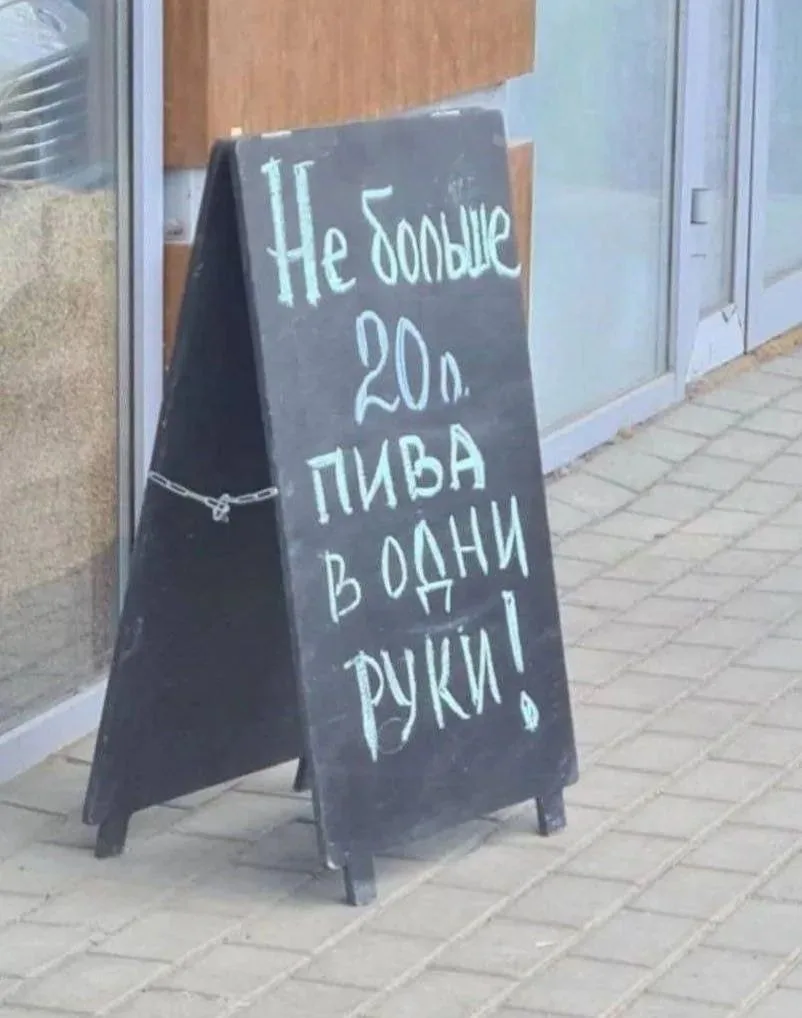 Не больше
20 л.
ПИВА
В ОДНИ
РУКИ!